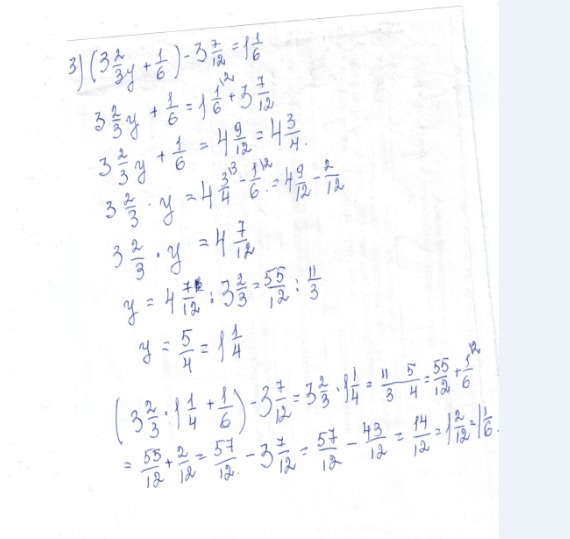 3) (3 2/3 y + 1/6) - 3 7/12 = 1 1/6
3 2/3 y + 1/6 = 1 1/6^2 + 3 7/12
3 2/3 y + 1/6 = 4 9/12 = 4 3/4.
3 2/3 · y = 4 3/4^3 - 1/6^2 = 4 9/12 - 2/12
3 2/3 · y = 4 7/12
y = 4 7/12 : 3 2/3 = 55/12 : 11/3
y = 5/4 = 1 1/4
(3 2/3 · 1 1/4 + 1/6) - 3 7/12 = 3 2/3 · 1 1/4 = 11/3 5/4 = 55/12 + 1/6^2
= 55/12 + 2/12 = 57/12 - 3 7/12 = 57/12 - 43/12 = 14/12 = 1 2/12 = 1 1/6.